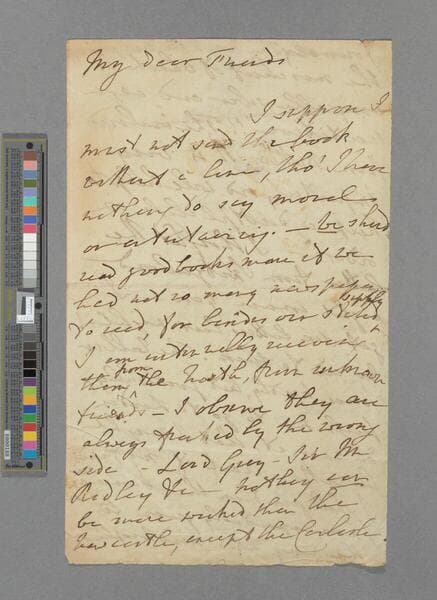 My dear Friends
I suppose I
must not send the book
without a line, tho' I have
nothing to say moral
or entertaining. — We shd
read good books more if we
had not so many newspapers
to read, for besides our stated supply
I am internally receiving
them from the North, from unknown
friends — I observe they are
always franked by the wrong
side - Lord Grey - Sir M
Ridley &c - nothing can
be more wicked than the
Newcastle, except the Carlisle.